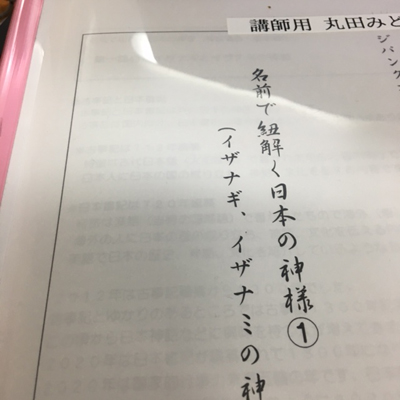 講師用 丸田みど
ジパング
名前で紐解く日本の神様①
(イザナギ、イザナミの神